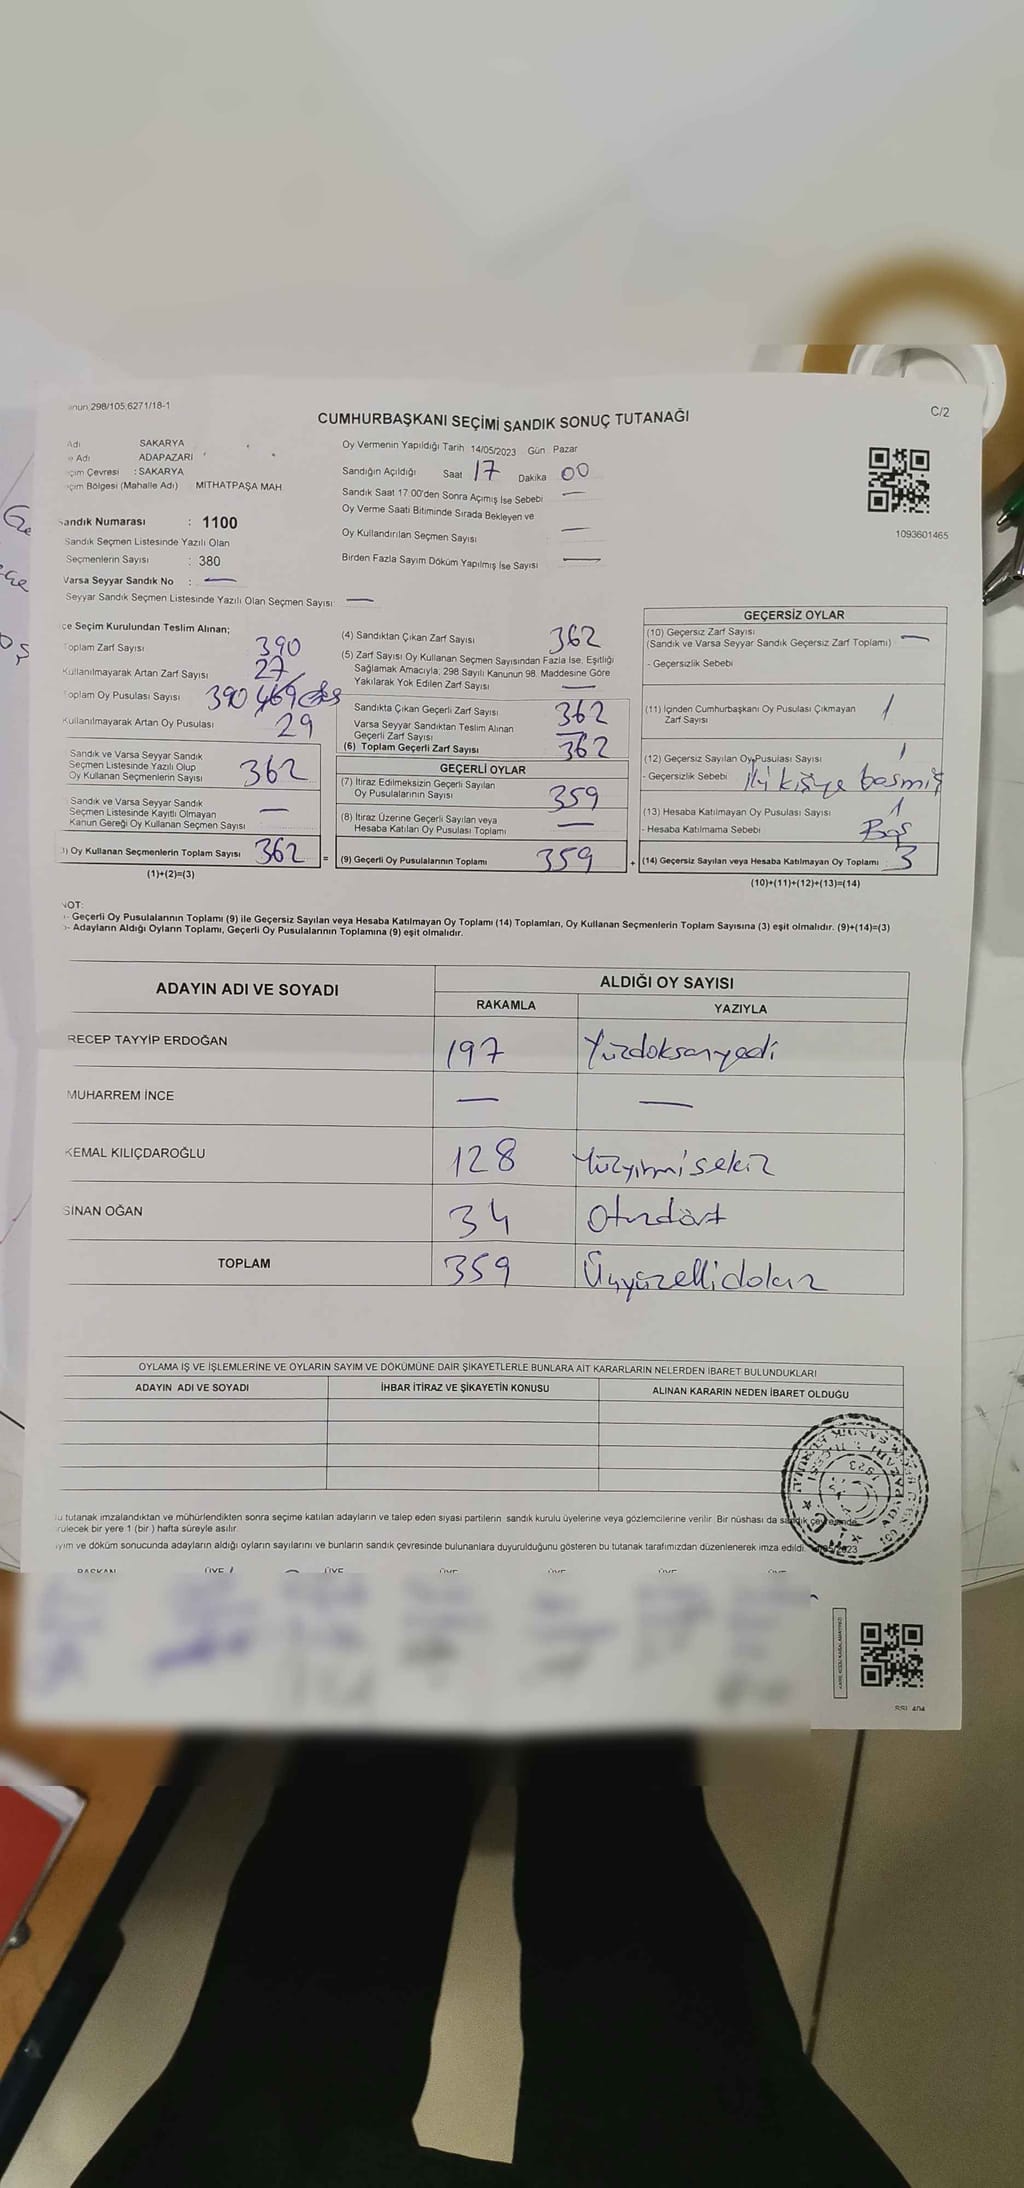 anun;298/105;6271/18-1
C/2
CUMHURBAŞKANI SEÇİMİ SANDIK SONUÇ TUTANAĞI
Adı SAKARYA
e Adı ADAPAZARI
çim Çevresi : SAKARYA
çim Bölgesi (Mahalle Adı) MİTHATPAŞA MAH.
Sandık Numarası : 1100
Sandık Seçmen Listesinde Yazılı Olan
Seçmenlerin Sayısı : 380
Varsa Seyyar Sandık No : —
Seyyar Sandık Seçmen Listesinde Yazılı Olan Seçmen Sayısı: —
Oy Vermenin Yapıldığı Tarih 14/05/2023 Gün Pazar
Sandığın Açıldığı Saat 17 Dakika 00
Sandık Saat 17:00'den Sonra Açımış İse Sebebi —
Oy Verme Saati Bitiminde Sırada Bekleyen ve
Oy Kullandırılan Seçmen Sayısı —
Birden Fazla Sayım Döküm Yapılmış İse Sayısı —
1093601465
çe Seçim Kurulundan Teslim Alınan;
Toplam Zarf Sayısı 390
Kullanılmayarak Artan Zarf Sayısı 27
Toplam Oy Pusulası Sayısı 390
Kullanılmayarak Artan Oy Pusulası 29
Sandık ve Varsa Seyyar Sandık
Seçmen Listesinde Yazılı Olup
Oy Kullanan Seçmenlerin Sayısı 362
Sandık ve Varsa Seyyar Sandık
Seçmen Listesinde Kayıtlı Olmayan
Kanun Gereği Oy Kullanan Seçmen Sayısı —
) Oy Kullanan Seçmenlerin Toplam Sayısı 362 =
(1)+(2)=(3)
(4) Sandıktan Çıkan Zarf Sayısı 362
(5) Zarf Sayısı Oy Kullanan Seçmen Sayısından Fazla İse, Eşitliği
Sağlamak Amacıyla, 298 Sayılı Kanunun 98. Maddesine Göre
Yakılarak Yok Edilen Zarf Sayısı —
Sandıkta Çıkan Geçerli Zarf Sayısı 362
Varsa Seyyar Sandıktan Teslim Alınan
Geçerli Zarf Sayısı —
(6) Toplam Geçerli Zarf Sayısı 362
GEÇERLİ OYLAR
(7) İtiraz Edilmeksizin Geçerli Sayılan
Oy Pusulalarının Sayısı 359
(8) İtiraz Üzerine Geçerli Sayılan veya
Hesaba Katılan Oy Pusulası Toplamı —
(9) Geçerli Oy Pusulalarının Toplamı 359 +
GEÇERSİZ OYLAR
(10) Geçersiz Zarf Sayısı —
(Sandık ve Varsa Seyyar Sandık Geçersiz Zarf Toplamı)
- Geçersizlik Sebebi
(11) İçinden Cumhurbaşkanı Oy Pusulası Çıkmayan
Zarf Sayısı 1
(12) Geçersiz Sayılan Oy Pusulası Sayısı 1
- Geçersizlik Sebebi İki kişiye basmış
(13) Hesaba Katılmayan Oy Pusulası Sayısı 1
- Hesaba Katılmama Sebebi Boş
(14) Geçersiz Sayılan veya Hesaba Katılmayan Oy Toplamı 3
(10)+(11)+(12)+(13)=(14)
NOT:
- Geçerli Oy Pusulalarının Toplamı (9) ile Geçersiz Sayılan veya Hesaba Katılmayan Oy Toplamı (14) Toplamları, Oy Kullanan Seçmenlerin Toplam Sayısına (3) eşit olmalıdır. (9)+(14)=(3)
- Adayların Aldığı Oyların Toplamı, Geçerli Oy Pusulalarının Toplamına (9) eşit olmalıdır.
ADAYIN ADI VE SOYADI ALDIĞI OY SAYISI
RAKAMLA YAZIYLA
RECEP TAYYİP ERDOĞAN 197 Yüzdoksanyedi
MUHARREM İNCE — —
KEMAL KILIÇDAROĞLU 128 Yüzyirmisekiz
SİNAN OĞAN 34 Otuzdört
TOPLAM 359 Üçyüzellidokuz
OYLAMA İŞ VE İŞLEMLERİNE VE OYLARIN SAYIM VE DÖKÜMÜNE DAİR ŞİKAYETLERLE BUNLARA AİT KARARLARIN NELERDEN İBARET BULUNDUKLARI
ADAYIN ADI VE SOYADI İHBAR İTİRAZ VE ŞİKAYETİN KONUSU ALINAN KARARIN NEDEN İBARET OLDUĞU
u tutanak imzalandıktan ve mühürlendikten sonra seçime katılan adayların ve talep eden siyasi partilerin sandık kurulu üyelerine veya gözlemcilerine verilir. Bir nüshası da sandık çevresinde
rülecek bir yere 1 (bir) hafta süreyle asılır.
ayım ve döküm sonucunda adayların aldığı oyların sayılarını ve bunların sandık çevresinde bulunanlara duyurulduğunu gösteren bu tutanak tarafımızdan düzenlenerek imza edildi.
BAŞKAN ÜYE ÜYE ÜYE ÜYE ÜYE ÜYE